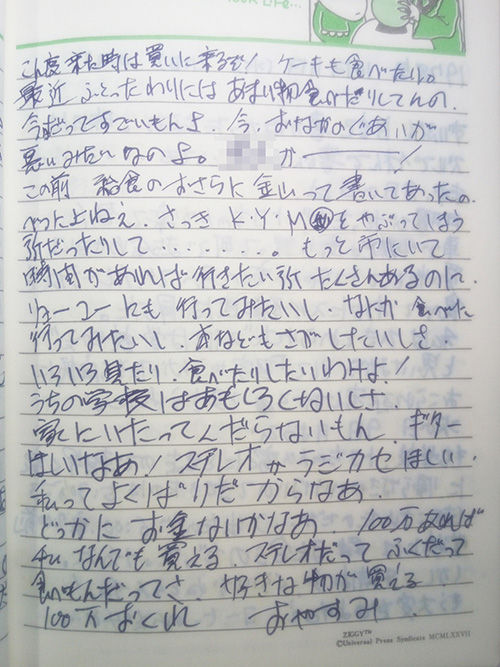 こん度来た時は買いに来るぞ！ケーキも食べたい。
最近ふとったわりにはあまい物食べたりしてんの。
今だってすごいもんよ。今、おなかのぐあいが
悪いみたいなのよ。が――！
この前 給食のおさらに金山って書いてあったの。
べったよねえ。さっき K・Y・M をやぶってしまう
所だったりして………。もっと市にいて
時間があれば行きたい所たくさんあるのに。
リューコーにも行ってみたいし、なんか食べに
行ってみたいし、あなどもさがしたいしさ、
いろいろ見たり、食べたりしたいわけよ！
うちの学校はおもしろくないしさ、
家にいたってくだらないもん。ギター
ほしいなあ！ステレオかラジカセほしい。
私ってよくばりだからなあ。
どっかにお金ないかなあ 100万あれば
なんでも買える。ステレオだってふくだって
食べもんだってさ。好きな物が買える
100万おくれ おやすみ
ZIGGY™
©Universal Press Syndicate MCMLXXVII